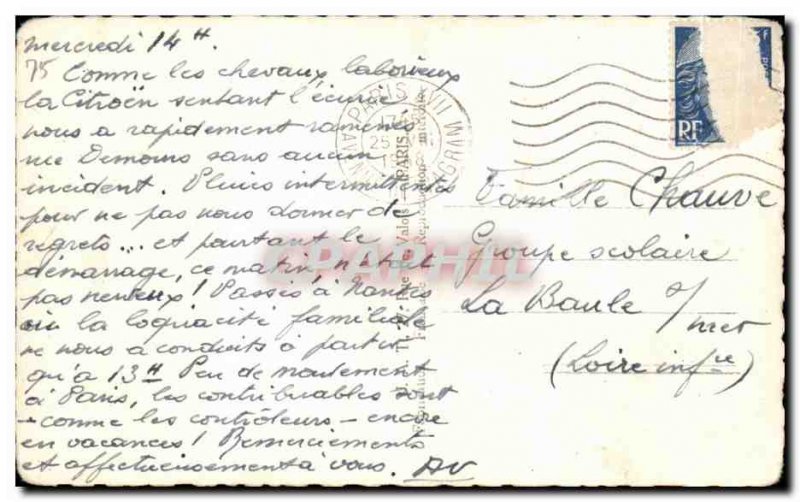 mercredi 14H.
75 Comme les chevaux laborieux
la Citroën sentant l'écurie
nous a rapidement ramenés
rue Demours sans aucun
incident. Pluies intermittentes
pour ne pas nous donner de
regrets... et pourtant le
démarrage, ce matin, n'était
pas nerveux! Passés à Nantes
où la loquacité familiale
ne nous a conduits à partir
qu'à 13H Peu de mouvement
à Paris, les contribuables sont
- comme les contrôleurs - encore
en vacances! Remerciements
et affectueusement à vous. AV
PARIS XVII
17
25
AV. WAGRAM
RF
Valois PARIS
Reproduction
CPAPHIL
Famille Chauve
Groupe scolaire
La Baule s/
mer
(Loire infre)